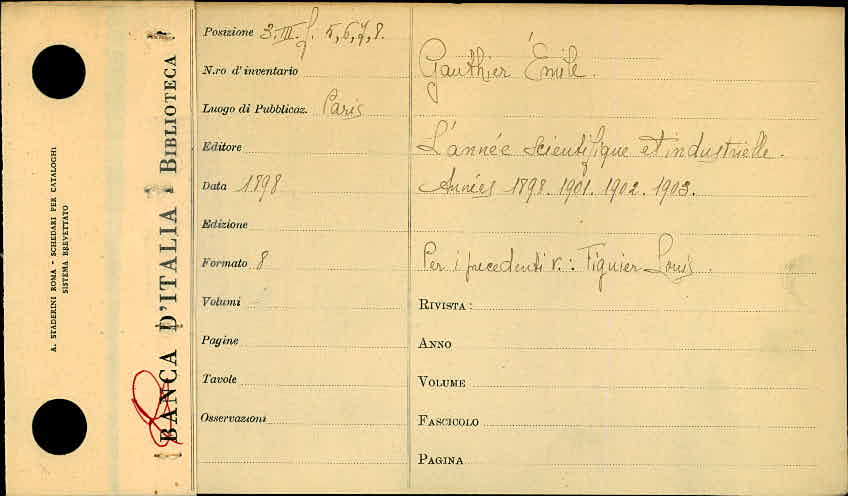 A. STADERINI ROMA - SCHEDARI PER CATALOGHI
SISTEMA BREVETTATO
BANCA D'ITALIA - BIBLIOTECA
Posizione 3. III. f. 5, 6, 7, 8.
N.ro d'inventario
Luogo di Pubblicaz. Paris
Editore
Data 1898
Edizione
Formato 8
Volumi
Pagine
Tavole
Osservazioni
Gauthier Émile.
L'année scientifique et industrielle.
Années 1898. 1901. 1902. 1903.
Per i precedenti v.: Figuier Louis.
RIVISTA:
ANNO
VOLUME
FASCICOLO
PAGINA